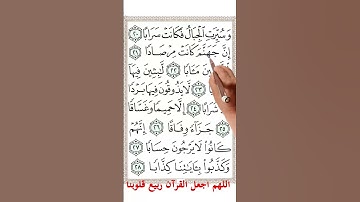 وَسُيِّرَتِ الْجِبَالُ فَكَانَتْ سَرَابًا ٢٠
إِنَّ جَهَنَّمَ كَانَتْ مِرْصَادًا ٢١
مَـَٔابًا ٢٢ لَّٰبِثِينَ فِيهَا
٢٣ لَّا يَذُوقُونَ فِيهَا بَرْدًا
شَرَابًا ٢٤ إِلَّا حَمِيمًا وَغَسَّاقًا
٢٥ جَزَآءً وِفَاقًا ٢٦ إِنَّهُمْ
كَانُوا۟ لَا يَرْجُونَ حِسَابًا ٢٧
وَكَذَّبُوا۟ بِـَٔايَٰتِنَا كِذَّابًا ٢٨
اللهم اجعل القرآن ربيع قلوبنا